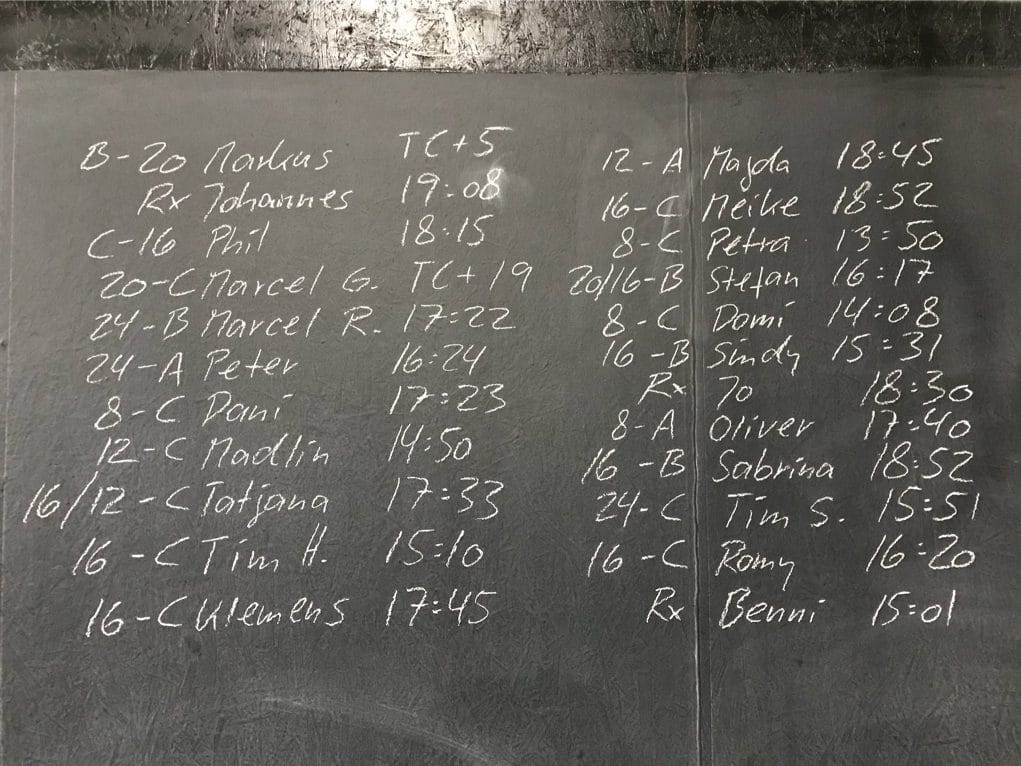 B-20 Markus TC+5
Rx Johannes 19:08
C-16 Phil 18:15
20-C Marcel G. TC+19
24-B Marcel R. 17:22
24-A Peter 16:24
8-C Dani 17:23
12-C Madlin 14:50
16/12-C Tatjana 17:33
16-C Tim H. 15:10
16-C Klemens 17:45
12-A Magda 18:45
16-C Meike 18:52
8-C Petra 13:50
20/16-B Stefan 16:17
8-C Domi 14:08
16-B Sindy 15:31
Rx Jo 18:30
8-A Oliver 17:40
16-B Sabrina 18:52
24-C Tim S. 15:51
16-C Romy 16:20
Rx Benni 15:01